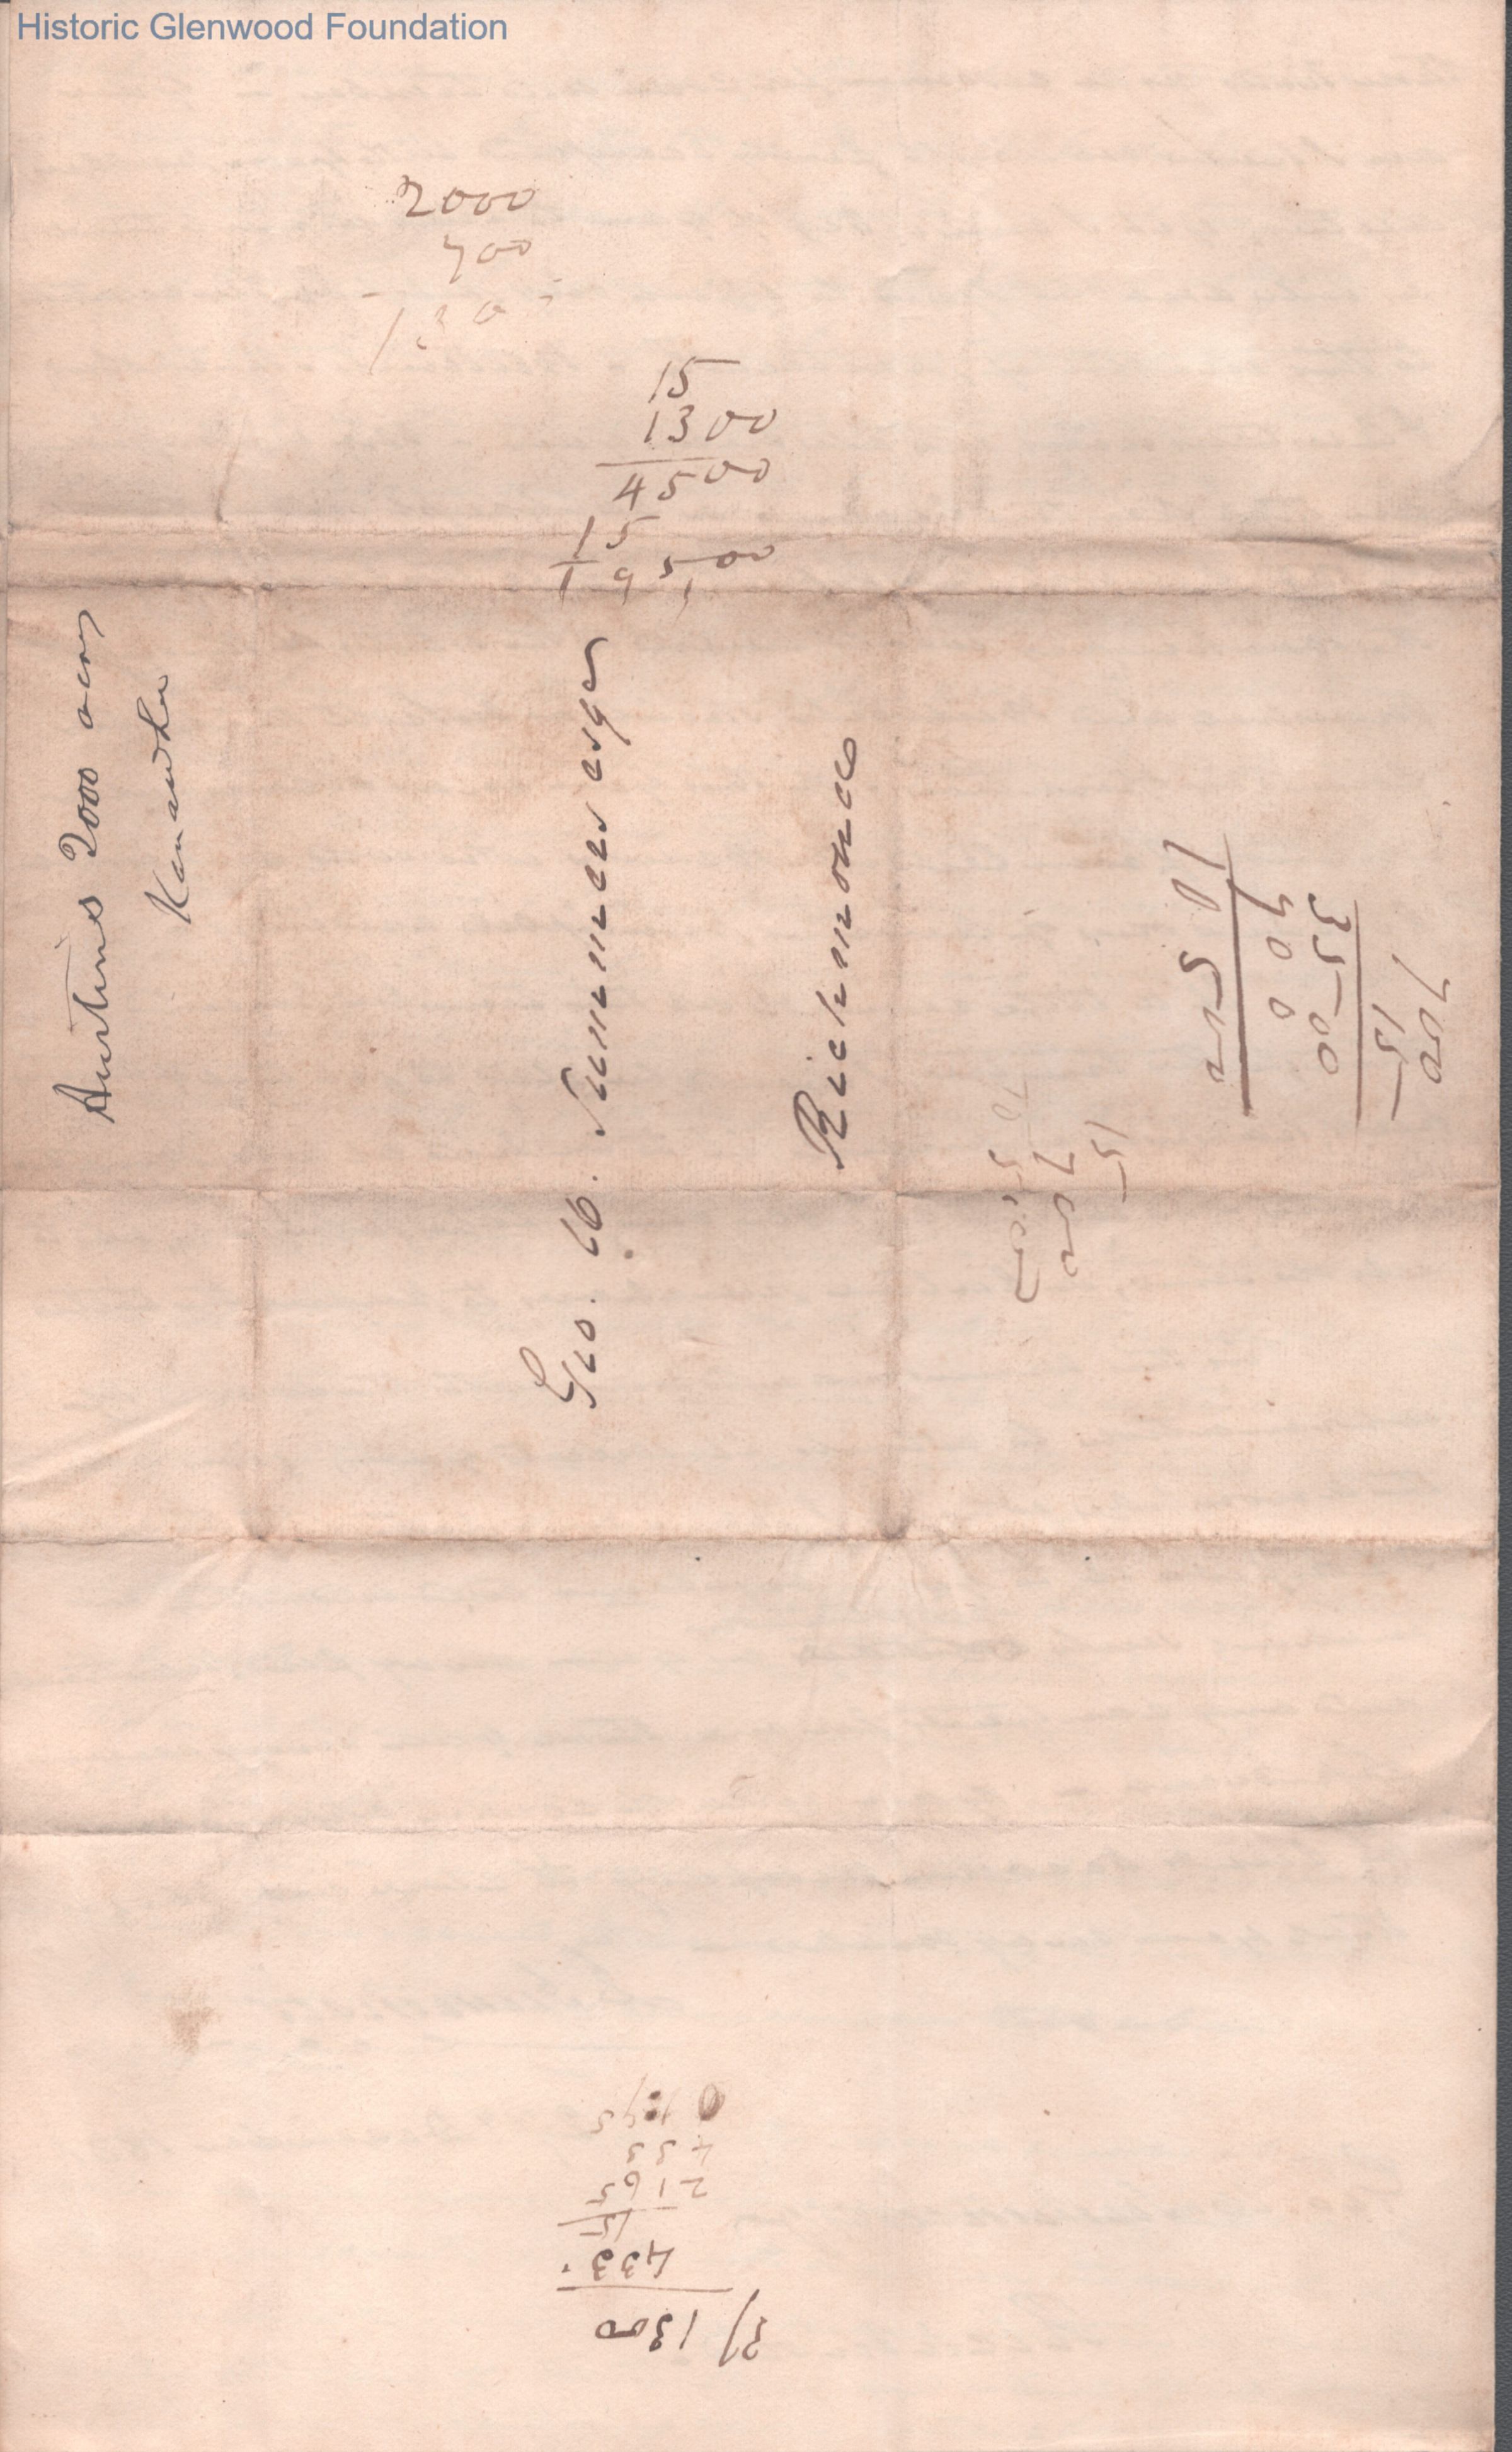 Historic Glenwood Foundation
2000
700
1300
15
1300
4500
15
19500
Austins 2000 acres
Kanawha
Geo. W. Summers esqr
Richmond
700
15
3500
700
105 00
15
700
3/ 1300
433
15
2165
433